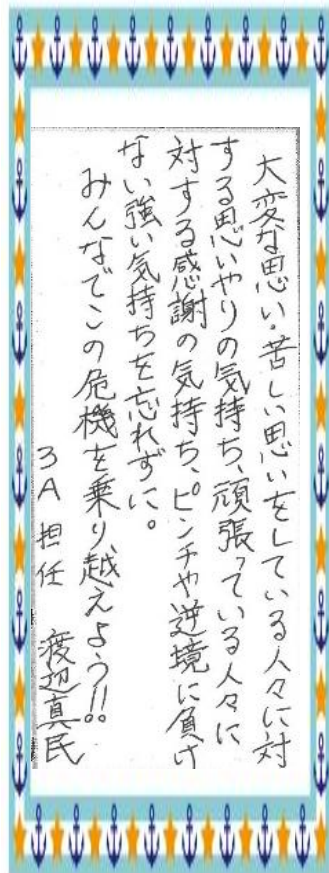 大変な思い・苦しい思いをしている人々に対
する思いやりの気持ち、頑張っている人々に
対する感謝の気持ち、ピンチや逆境に負け
ない強い気持ちを忘れずに。
みんなでこの危機を乗り越えよう!!
3A 担任 渡辺真民